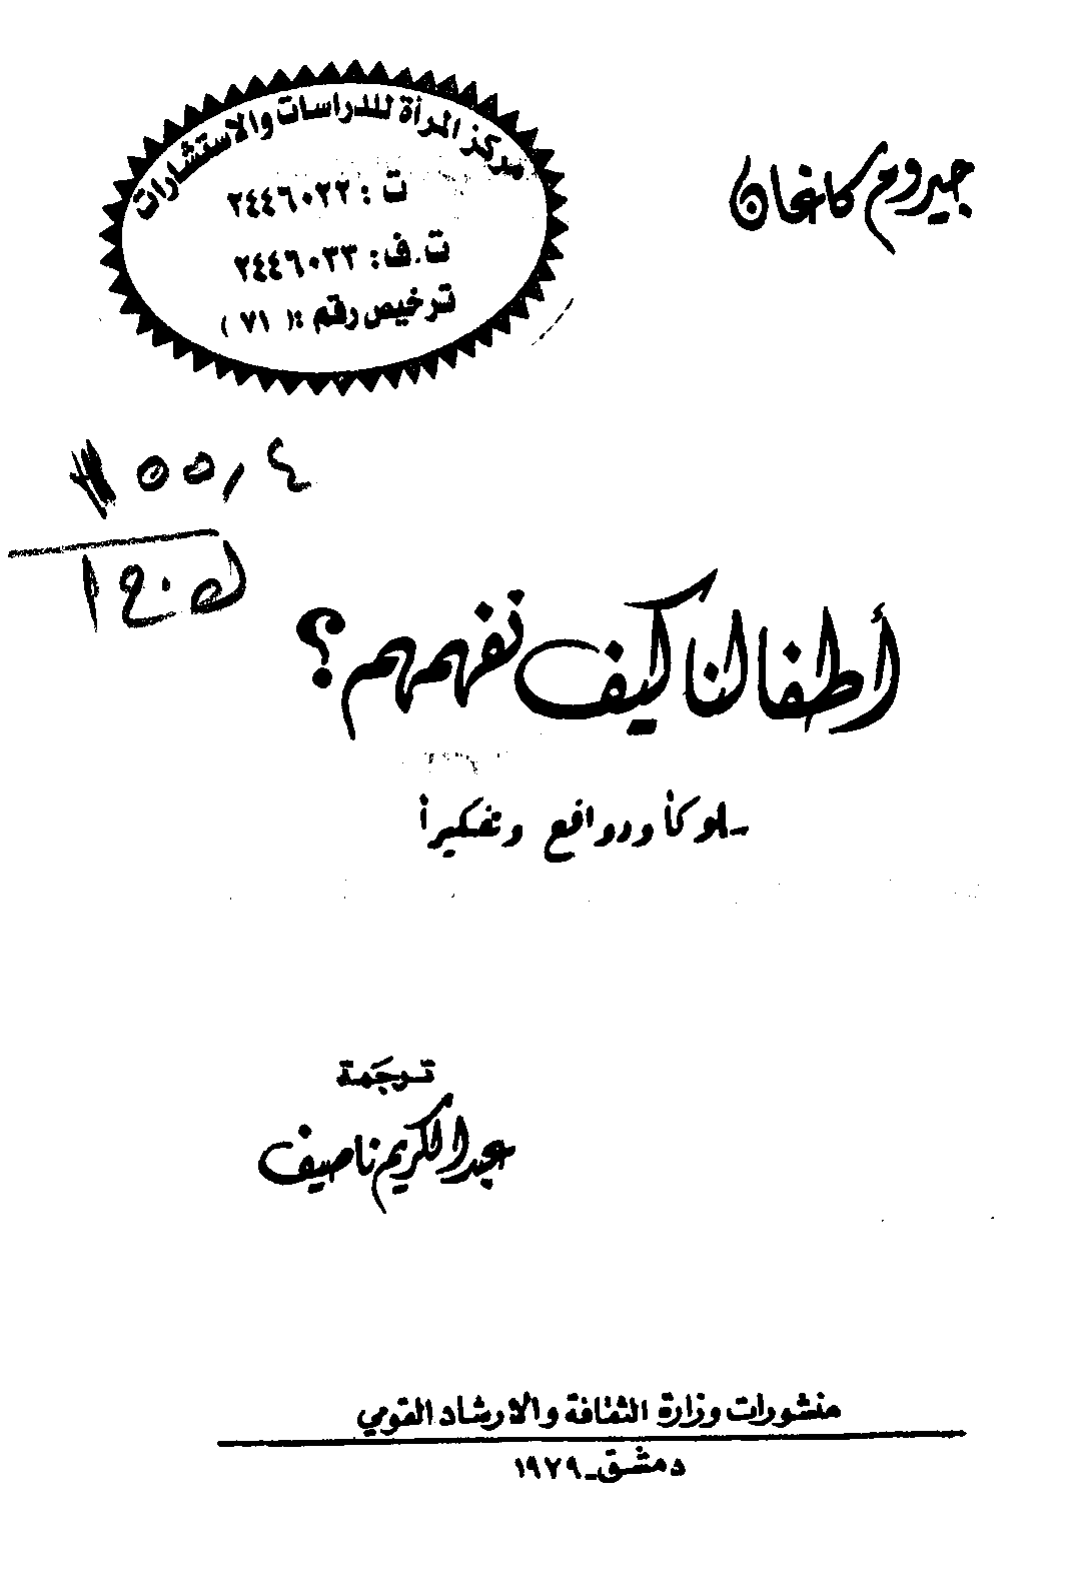 جيروم كاغان
مركز المرأة للدراسات والاستشارات
ت : ٢٤٤٦٠٢٢
ت.ف: ٢٤٤٦٠٣٣
ترخيص رقم :( ٧١ )
١٥٥,٤
ك.ج ا
أطفالنا كيف نفهمهم ؟
سلوكاً ودوافع وتفكيراً
ترجمة
عبد الكريم ناصيف
منشورات وزارة الثقافة والارشاد القومي
دمشق - ١٩٧٩